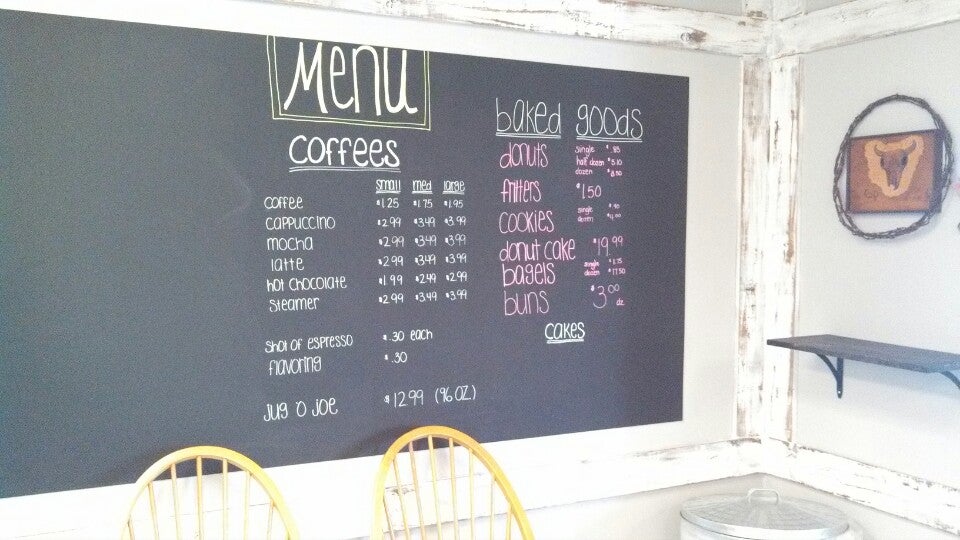 Menu
coffees
small med large
coffee $1.25 $1.75 $1.95
cappuccino $2.99 $3.49 $3.99
mocha $2.99 $3.49 $3.99
latte $2.99 $3.49 $3.99
hot chocolate $1.99 $2.49 $2.99
steamer $2.99 $3.49 $3.99
shot of espresso $.30 each
flavoring $.30
jug o joe $12.99 (96 oz.)
baked goods
donuts
single $.85
half dozen $5.10
dozen $8.50
fritters $1.50
cookies
single
dozen
donut cake $19.99
bagels
single $1.75
dozen $17.50
buns $3.00 dz
cakes